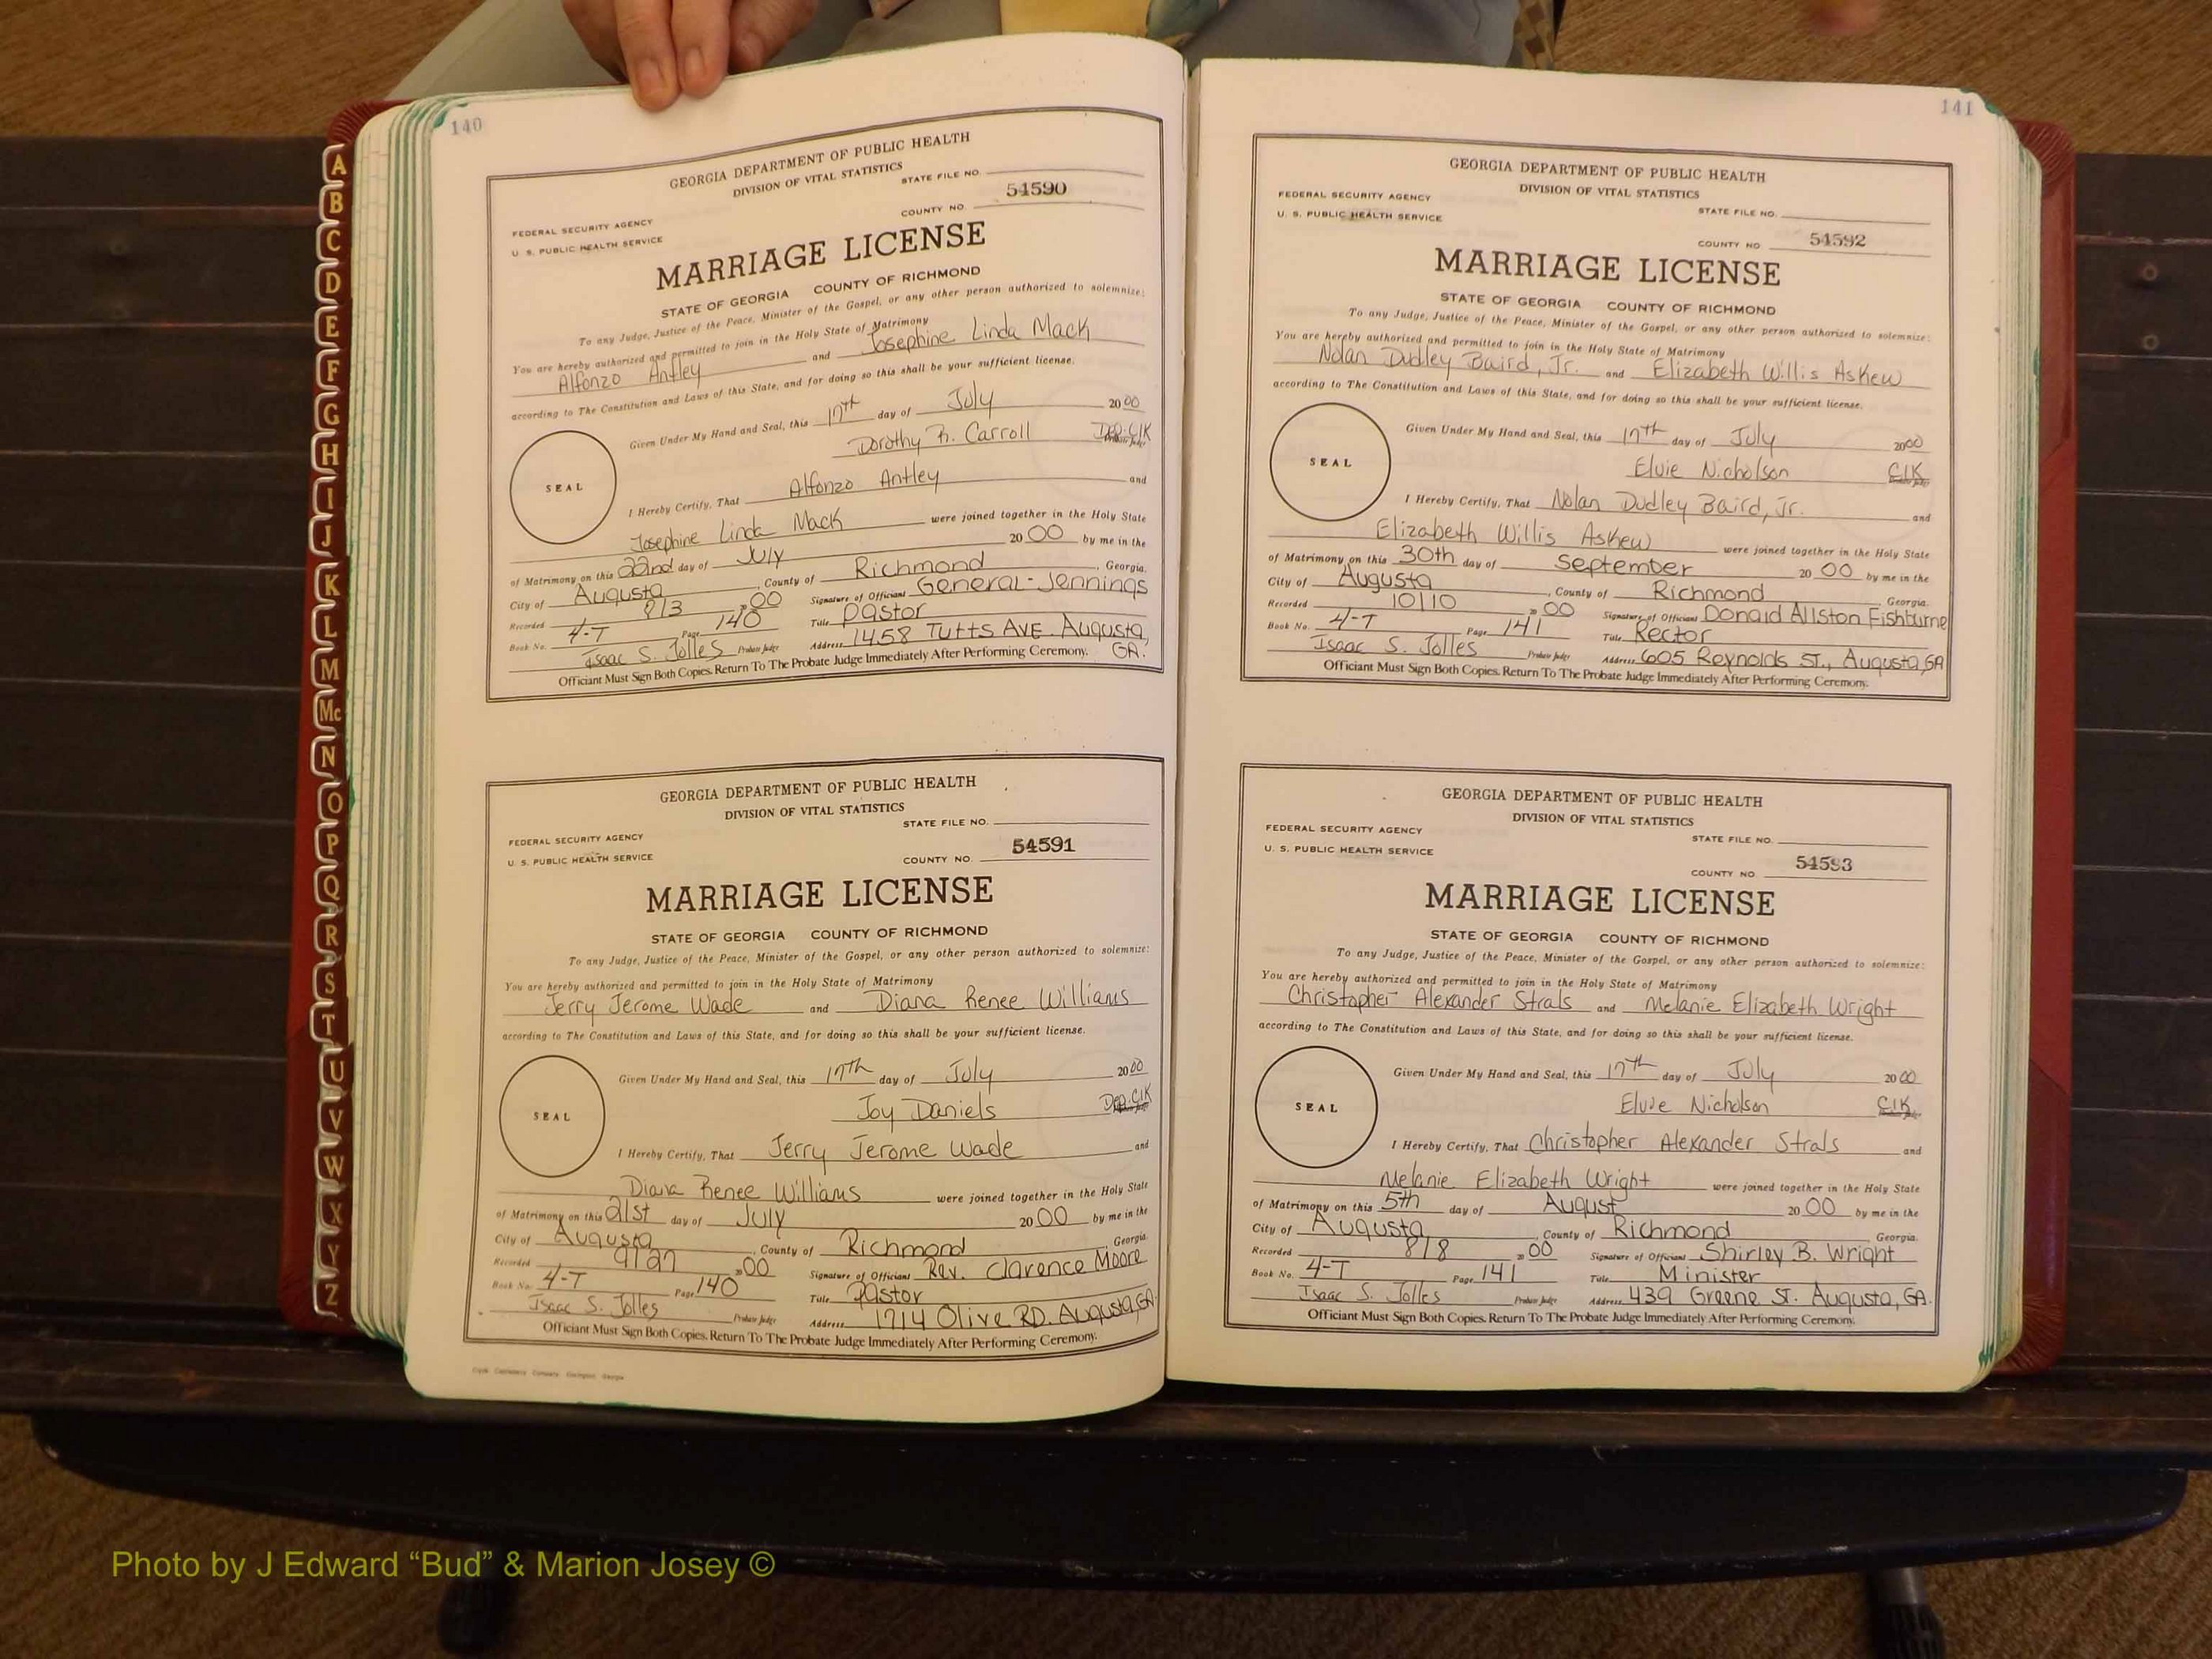 140
GEORGIA DEPARTMENT OF PUBLIC HEALTH
DIVISION OF VITAL STATISTICS
STATE FILE NO.
FEDERAL SECURITY AGENCY
U. S. PUBLIC HEALTH SERVICE
COUNTY NO. 54590
MARRIAGE LICENSE
STATE OF GEORGIA COUNTY OF RICHMOND
To any Judge, Justice of the Peace, Minister of the Gospel, or any other person authorized to solemnize:
You are hereby authorized and permitted to join in the Holy State of Matrimony
Alfonzo Antley and Josephine Linda Mack
according to The Constitution and Laws of this State, and for doing so this shall be your sufficient license.
Given Under My Hand and Seal, this 17th day of July 2000
Dorothy R. Carroll Dep. Clk
SEAL
I Hereby Certify, That Alfonzo Antley and
Josephine Linda Mack were joined together in the Holy State
of Matrimony on this 22nd day of July 20 00 by me in the
City of Augusta, County of Richmond, Georgia.
Recorded 8/3 2000 Signature of Officiant General Jennings
Book No. 4-T Page 140 Title Pastor
Isaac S. Jolles Probate Judge Address 1458 Tutts AVE. Augusta, GA.
Officiant Must Sign Both Copies. Return To The Probate Judge Immediately After Performing Ceremony.
GEORGIA DEPARTMENT OF PUBLIC HEALTH
DIVISION OF VITAL STATISTICS
STATE FILE NO.
FEDERAL SECURITY AGENCY
U. S. PUBLIC HEALTH SERVICE
COUNTY NO. 54591
MARRIAGE LICENSE
STATE OF GEORGIA COUNTY OF RICHMOND
To any Judge, Justice of the Peace, Minister of the Gospel, or any other person authorized to solemnize:
You are hereby authorized and permitted to join in the Holy State of Matrimony
Jerry Jerome Wade and Diana Renee Williams
according to The Constitution and Laws of this State, and for doing so this shall be your sufficient license.
Given Under My Hand and Seal, this 17th day of July 2000
Joy Daniels Dep. Clk
SEAL
I Hereby Certify, That Jerry Jerome Wade and
Diana Renee Williams were joined together in the Holy State
of Matrimony on this 21st day of July 20 00 by me in the
City of Augusta, County of Richmond, Georgia.
Recorded 9/27 2000 Signature of Officiant Rev. Clarence Moore
Book No. 4-T Page 140 Title Pastor
Isaac S. Jolles Probate Judge Address 1714 Olive RD. Augusta, GA.
Officiant Must Sign Both Copies. Return To The Probate Judge Immediately After Performing Ceremony.
141
GEORGIA DEPARTMENT OF PUBLIC HEALTH
DIVISION OF VITAL STATISTICS
FEDERAL SECURITY AGENCY
U. S. PUBLIC HEALTH SERVICE
STATE FILE NO.
COUNTY NO 54592
MARRIAGE LICENSE
STATE OF GEORGIA COUNTY OF RICHMOND
To any Judge, Justice of the Peace, Minister of the Gospel, or any other person authorized to solemnize:
You are hereby authorized and permitted to join in the Holy State of Matrimony
Nolan Dudley Baird, Jr. and Elizabeth Willis Askew
according to The Constitution and Laws of this State, and for doing so this shall be your sufficient license.
Given Under My Hand and Seal, this 17th day of July 2000
Elvie Nicholson Clk
SEAL
I Hereby Certify, That Nolan Dudley Baird, Jr. and
Elizabeth Willis Askew were joined together in the Holy State
of Matrimony on this 30th day of September 20 00 by me in the
City of Augusta, County of Richmond Georgia.
Recorded 10/10 2000 Signature of Officiant Donald Allston Fishburne
Book No. 4-T Page 141 Title Rector
Isaac S. Jolles Probate Judge Address 605 Reynolds St., Augusta, GA
Officiant Must Sign Both Copies. Return To The Probate Judge Immediately After Performing Ceremony.
GEORGIA DEPARTMENT OF PUBLIC HEALTH
DIVISION OF VITAL STATISTICS
FEDERAL SECURITY AGENCY
U. S. PUBLIC HEALTH SERVICE
STATE FILE NO.
COUNTY NO. 54593
MARRIAGE LICENSE
STATE OF GEORGIA COUNTY OF RICHMOND
To any Judge, Justice of the Peace, Minister of the Gospel, or any other person authorized to solemnize:
You are hereby authorized and permitted to join in the Holy State of Matrimony
Christopher Alexander Strals and Melanie Elizabeth Wright
according to The Constitution and Laws of this State, and for doing so this shall be your sufficient license.
Given Under My Hand and Seal, this 17th day of July 2000
Elvie Nicholson Clk
SEAL
I Hereby Certify, That Christopher Alexander Strals and
Melanie Elizabeth Wright were joined together in the Holy State
of Matrimony on this 5th day of August 20 00 by me in the
City of Augusta, County of Richmond Georgia.
Recorded 8/8 2000 Signature of Officiant Shirley B. Wright
Book No. 4-T Page 141 Title Minister
Isaac S. Jolles Probate Judge Address 439 Greene St. Augusta, GA.
Officiant Must Sign Both Copies. Return To The Probate Judge Immediately After Performing Ceremony.
A
B
C
D
E
F
G
H
I
J
K
L
M
Mc
N
O
P
Q
R
S
T
U
V
W
X
Y
Z
Photo by J Edward “Bud” & Marion Josey ©